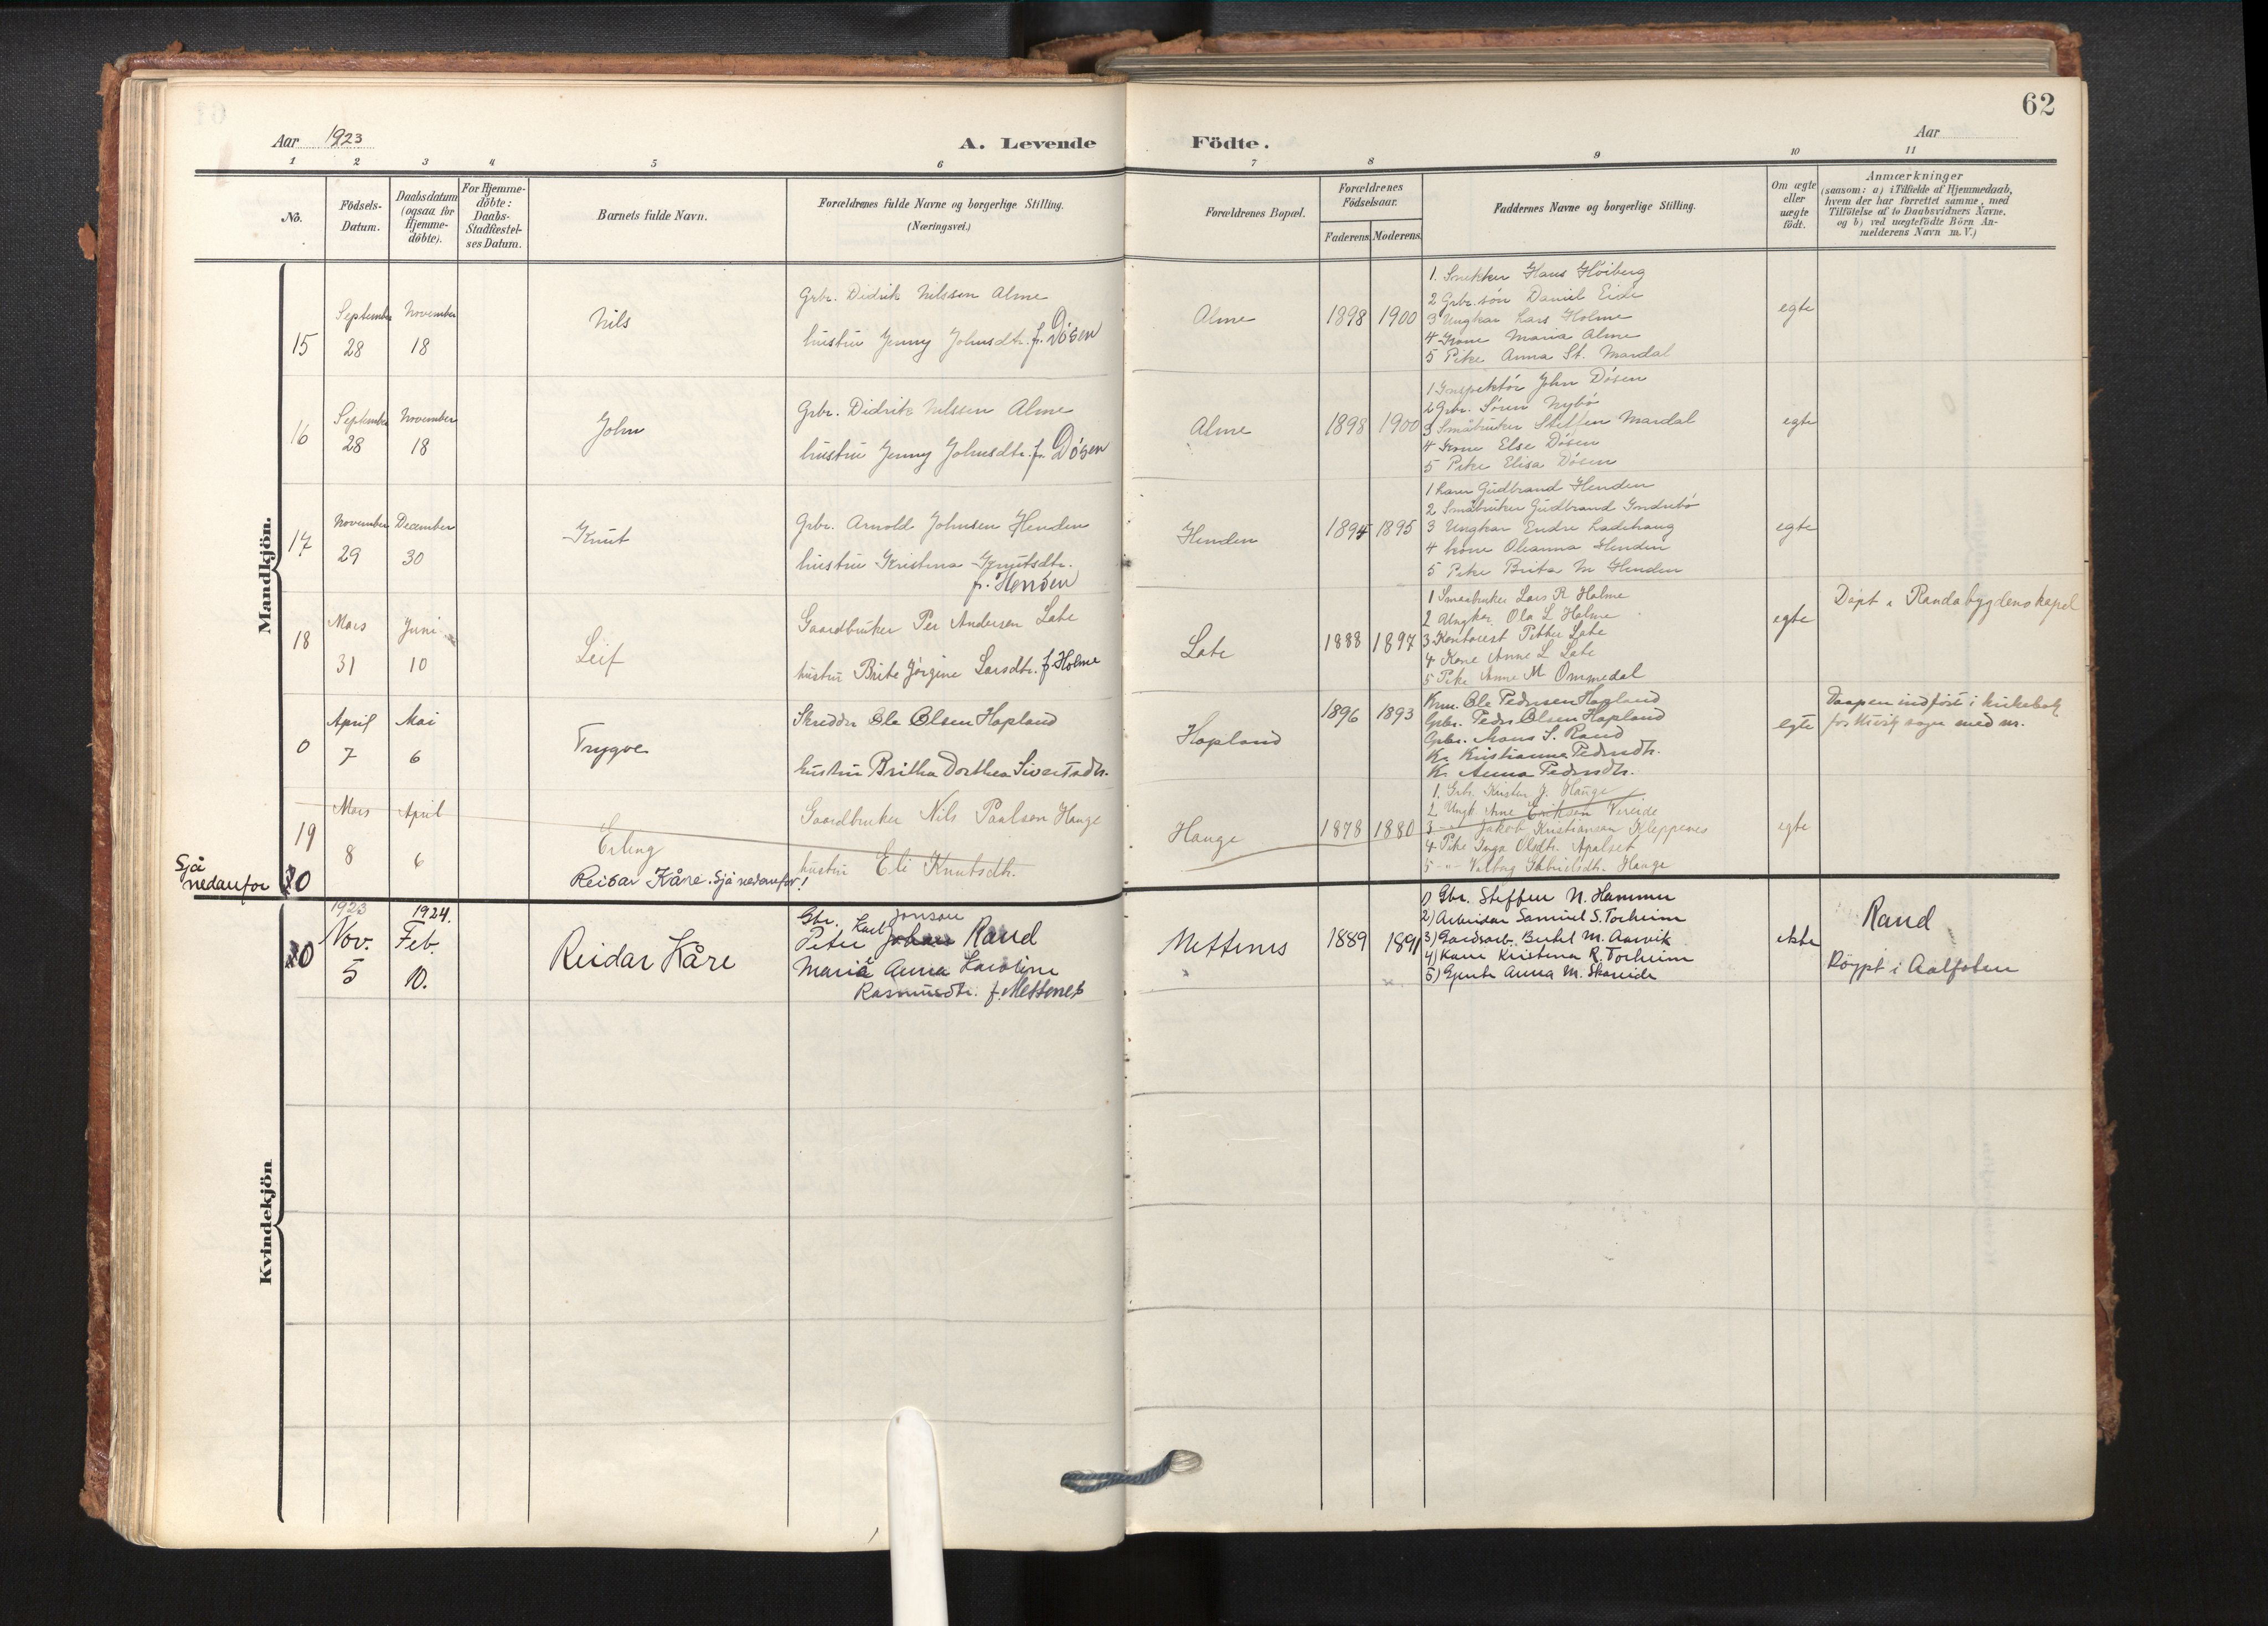 62
Aar 1923
A. Levende Födte.
Aar
1 2 3 4 5 6 7 8 9 10 11
No.
Födsels-Datum.
Daabsdatum (ogsaa for Hjemme-döbte).
For Hjemme-döbte: Daabs-Stadfæstel-ses Datum.
Barnets fulde Navn.
Forældrenes fulde Navne og borgerlige Stilling.
(Næringsvei.)
Forældrenes Bopæl.
Forældrenes Födselsaar.
Faderens. Moderens.
Faddernes Navne og borgerlige Stilling.
Om ægte eller uægte födt.
Anmærkninger
(saasom: a) i Tilfælde af Hjemmedaab,
hvem der har forrettet samme, med
Tilföielse af to Daabsvidners Navne,
og b) ved uægtefödte Börn An-
melderens Navn m. V.)
Mandkjön.
15
September 28
November 18
Nils
Grbr. Didrik Nilssen Alme
hustru Jenny Johnsdtr. f. Døsen
Alme
1898 1900
1. Snekker Hans Høiberg
2 Grbr.søn Daniel Eide
3 Ungkar Lars Holme
4 Kone Maria Alme
5 Pike Anna St. Mardal
egte
16
September 28
November 18
John
Grbr. Didrik Nilssen Alme
hustru Jenny Johnsdtr. f. Døsen
Alme
1898 1900
1 Inspektør John Døsen
2 Grbr. Søren Nybø
3 Småbruker Steffen Mardal
4 Kone Else Døsen
5 Pike Elisa Døsen
egte
17
November 29
December 30
Knut
Grbr. Arnold Johnsen Henden
hustru Kristina Knutsdtr.
f. Henden
Henden
1894 1895
1 Gudbrand Henden
2 Småbruker Gudbrand Indrebø
3 Ungkar Endre Ladehaug
4 kone Oleanna Henden
5 Pike Brita M Henden
egte
18
Mars 31
Juni 10
Leif
Gaardbruker Per Andersen Late
hustru Brite Jørgine Larsdtr. f. Holme
Late
1888 1897
1 Smaabruker Lars R Holme
2 Ungkar Ola L Holme
3 Kontorist Petter Late
4 Kone Anne L Late
5 Pike Anne M Ommedal
egte
Døpt i Randabygdens kapel
0
April 7
Mai 6
Trygve
Skredder Ole Olsen Hopland
hustru Britha Dorthea Sivertsdtr.
Hopland
1896 1893
Krm. Ole Pedersen Hopland
Grbr. Peder Olsen Hopland
Grbr. Mons S. Rand
K. Kristianna Pedersdtr.
K. Anna Pedersdtr.
egte
Daapen indført i kirkebok
for Utvik sogn med nr.
19
Mars 8
April 6
Erling
Gaardbruker Nils Paulsen Hauge
hustru Eli Knutsdtr.
Hauge
1878 1880
1. Grbr. Kristen J. Hauge
2 Ungk. Arne Eriksen Vereide
3 -"- Jakob Kristiansen Kleppenes
4 Pike Inga Olsdtr. Apalset
5 -"- Valborg Gabrielsdtr. Hauge
egte
Sjå nedanfor
20
Reidar Kåre. Sjå nedanfor!
Kvindekjön
20
1923 Nov. 5
1924. Feb. 10.
Reidar Kåre
Gbr. Karl Jonson
Peter Johan Rand
Maria Anna Karoline
Rasmusdtr. f. Mettenes
Mettenes
1889 1891
1) Gbr. Steffen N. Hammer
2) Arbeidar Samuel S. Torheim
3) Gardsarb. Bertel M. Aarvik
4) Kone Kristina R. Torheim
5) Gjente Anna M. Skareide
ekte
Rand
Døypt i Aalfoten